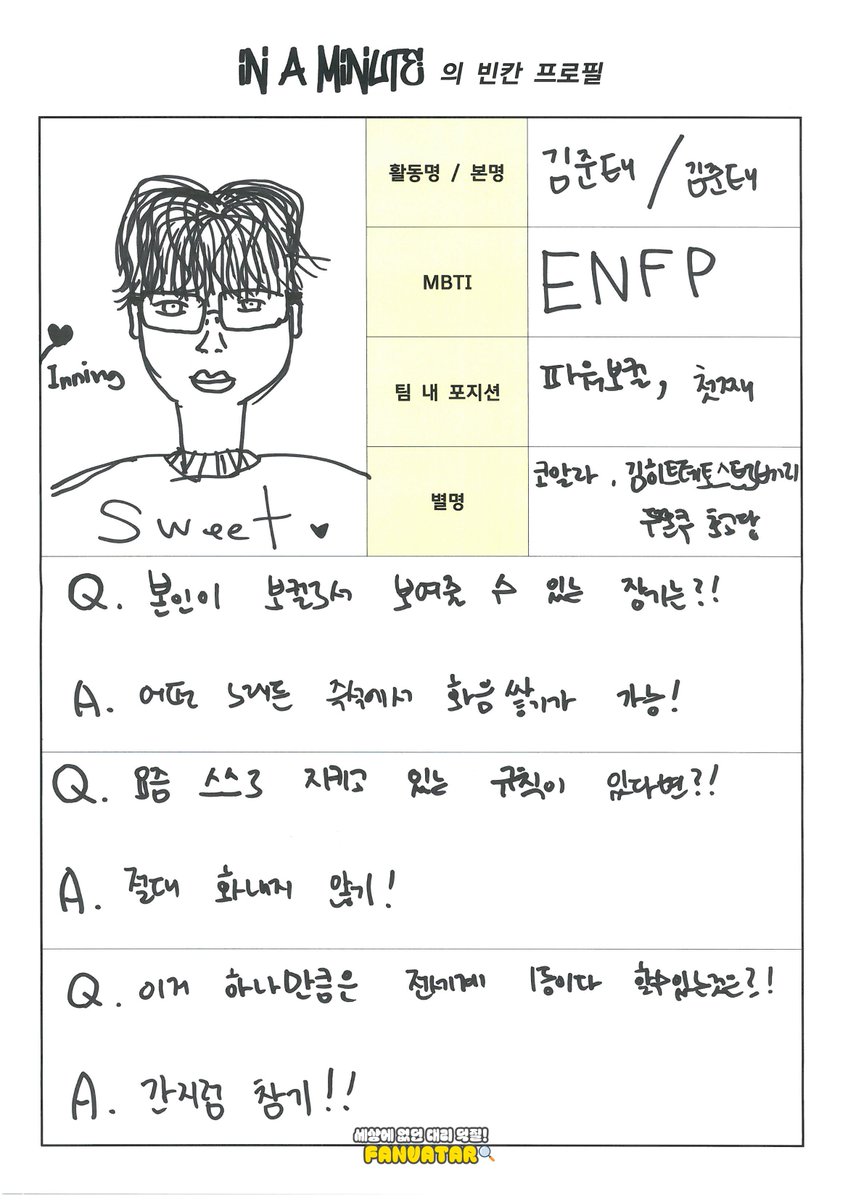 IN A MINUTE 의 빈칸 프로필
활동명 / 본명
김준태 / 김준태
MBTI
ENFP
팀 내 포지션
파워보컬, 첫째
별명
코알라.
Inning
Sweet
Q. 본인이 보컬로서 보여줄 수 있는 장기는?!
A. 어떤 노래든 즉석에서 화음쌓기가 가능!
Q. 요즘 스스로 지키고 있는 규칙이 있다면?!
A. 절대 화내지 않기!
Q. 이거 하나만큼은 전세계 1등이다 할수있는것은?!
A. 간지럼 참기!!
세상에 없던 대리 덕질!
FANVATAR